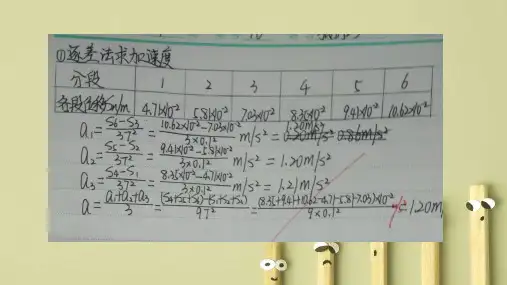 ①逐差法求加速度
分段 1 2 3 4 5 6
各段位移Sn/m 4.71×10⁻² 5.81×10⁻² 7.03×10⁻² 8.35×10⁻² 9.41×10⁻² 10.62×10⁻²
a₁=(S6-S3)/3T²=(10.62×10⁻²-7.03×10⁻²)/(3×0.1²) m/s²=1.20m/s²
a₂=(S5-S2)/3T²=(9.41×10⁻²-5.81×10⁻²)/(3×0.1²) m/s²=1.20m/s²
a₃=(S4-S1)/3T²=(8.35×10⁻²-4.71×10⁻²)/(3×0.1²) m/s²=1.21m/s²
a=(a₁+a₂+a₃)/3=((S4+S5+S6)-(S1+S2+S3))/9T²=(8.35+9.41+10.62-4.71-5.81-7.03)×10⁻²/(9×0.1²)=1.20m